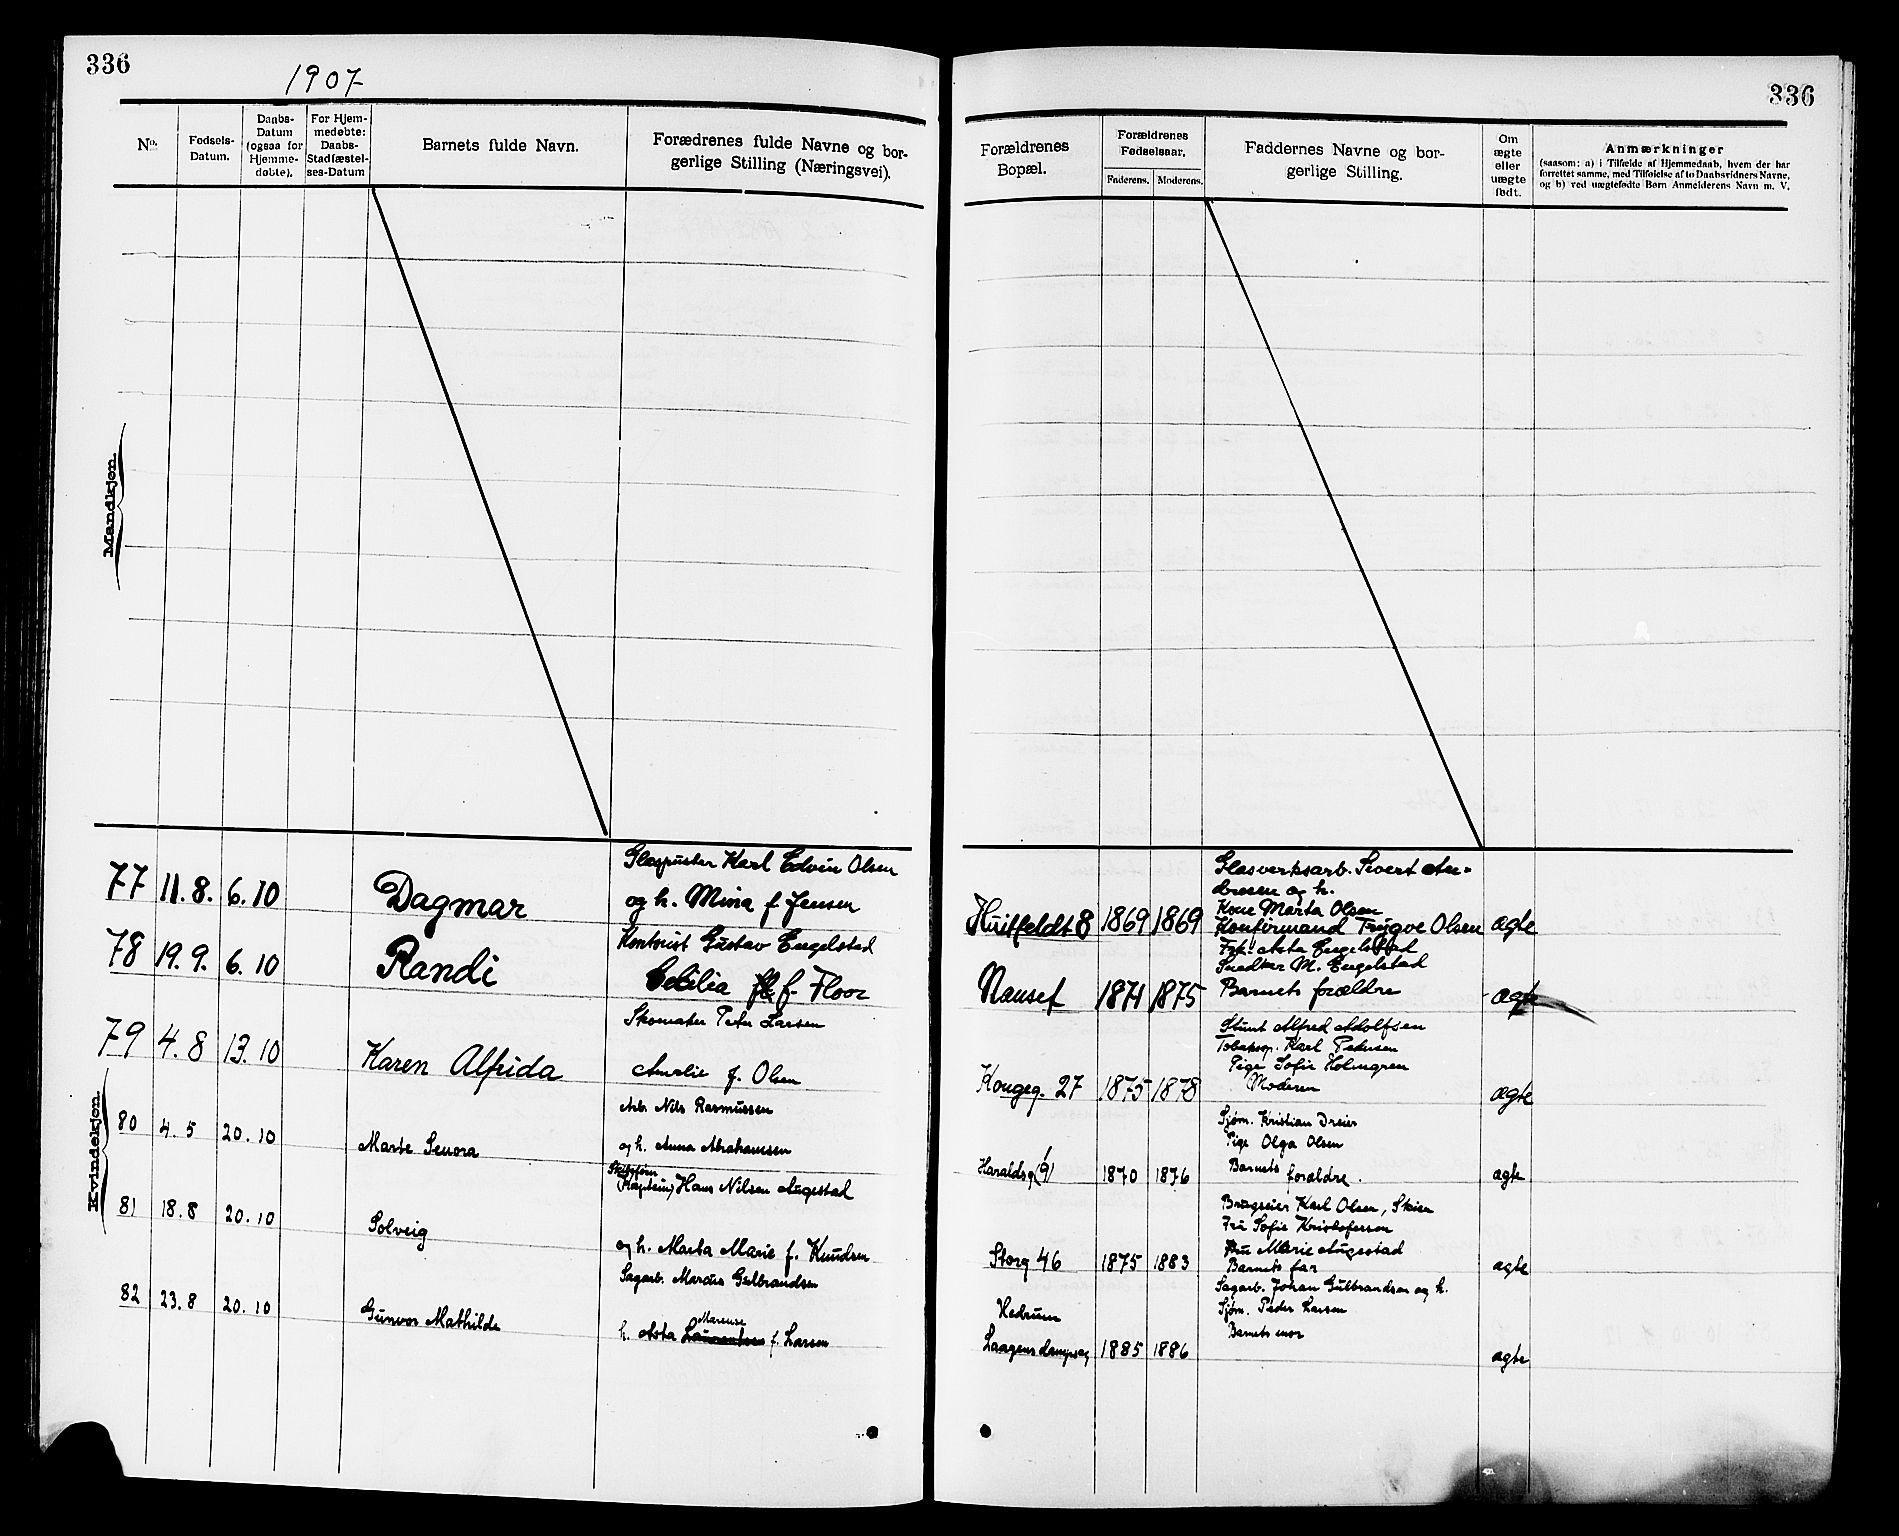 336
1907
No.
Fødsels-
Datum.
Daabs-
Datum
(ogsaa for
Hjemme-
døbte).
For Hjem-
medøbte:
Daabs-
Stadfæstel-
ses-Datum
Barnets fulde Navn.
Forædrenes fulde Navne og bor-
gerlige Stilling (Næringsvei).
Mandkjøn.
Kvindekjøn.
77 11.8. 6.10 Dagmar
Glaspuster Karl Edvin Olsen
og h. Mina f. Jensen
78 19.9. 6.10 Randi
Kontorist Gustav Engelstad
Cecilia f. Floor
79 4.8 13.10 Karen Alfrida
Skomaker Peter Larsen
Amalie f. Olsen
80 4.5 20.10 Marte Senora
Arb. Nils Rasmussen
og h. Anna Abrahamsen
81 18.8 20.10 Solveig
Skibsfører
(Kaptein) Hans Nilsen Augestad
og h. Marta Marie f. Knudsen
82 23.8 20.10 Gunvor Mathilde
Sagarb. Marius Gulbrandsen
Marense
h. Asta Laurentse f. Larsen
336
Forældrenes
Bopæl.
Forældrenes
Fødselsaar.
Faderens. Moderens.
Faddernes Navne og bor-
gerlige Stilling.
Om
ægte
eller
uægte
født.
Anmærkninger
(saasom: a) i Tilfælde af Hjemmedaab, hvem der har
forrettet samme, med Tilføielse af to Daabsvidners Navne,
og b) ved uægtefødte Børn Anmelderens Navn m. V.
Huitfeldt 8 1869 1869
Glasverksarb. Sivert An-
dresen og h.
Kone Marta Olsen
Konfirmand Trygve Olsen
ægte
Nanset 1871 1875
Frk. Asta Engelstad
Snedker M. Engelstad
Barnets forældre
ægte
Kongeg. 27 1875 1878
Stuert Alfred Adolfsen
Tobakssp. Karl Pedersen
Pige Sofie Holmgren
Moderen
ægte
Haraldsg (9) 1870 1876
Sjøm. Kristian Dreier
Pige Olga Olsen
Barnets forældre.
ægte
Storg 46 1875 1883
Brugseier Karl Olsen, Skien
Fru Sofie Kristofersen
Fru Marie Augestad
Barnets far
ægte
Hedrum
Laagendampsag 1885 1886
Sagarb. Johan Gulbrandsen og h.
Sjøm. Peder Larsen
Barnets mor
ægte